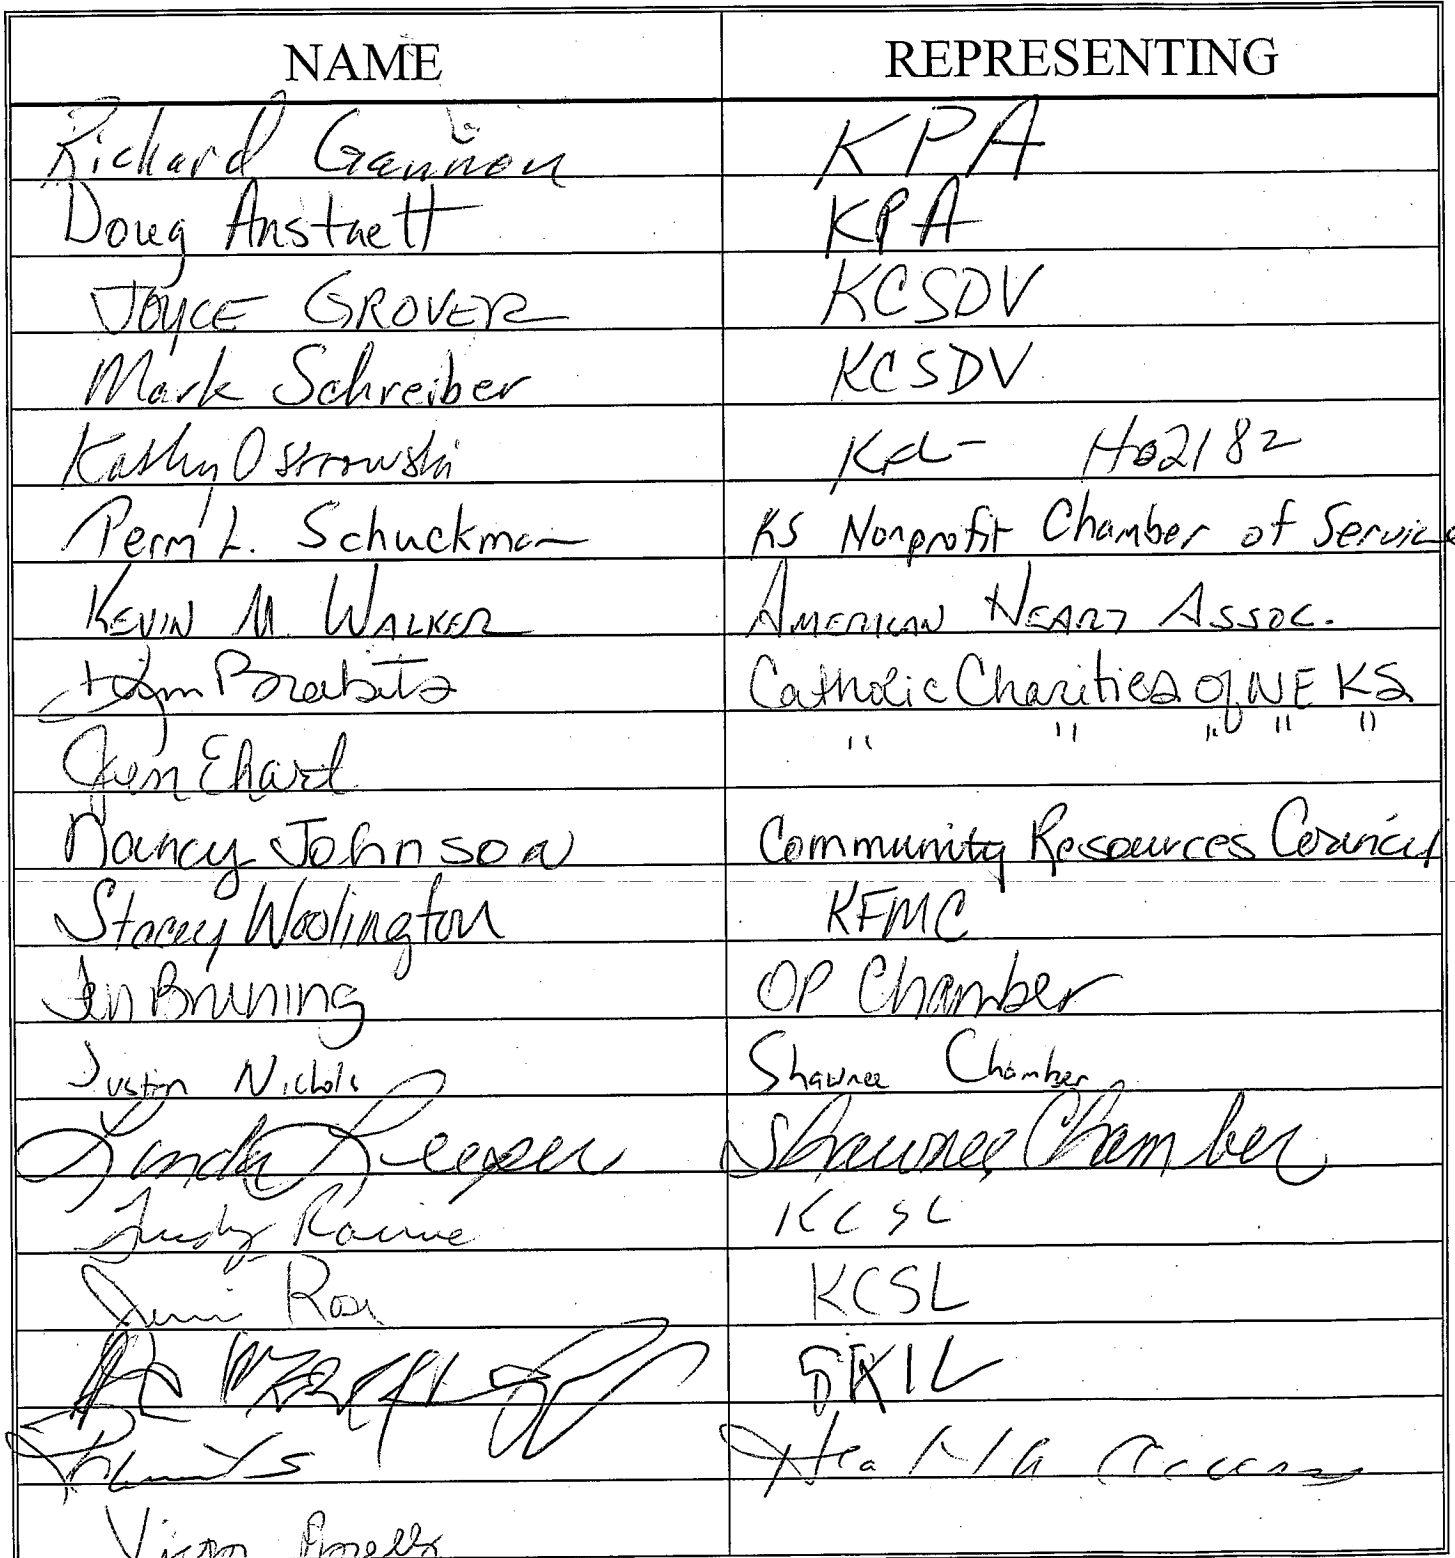 NAME REPRESENTING
Richard Gannon KPA
Doug Anstaett KPA
JOYCE GROVER KCSDV
Mark Schreiber KCSDV
Kathy Ostrowski KFL - HB2182
Perm L. Schuckman KS Nonprofit Chamber of Service
KEVIN M. WALKER AMERICAN HEART ASSOC.
Kym Brabits Catholic Charities of NE KS
Jen Ehart " " " " "
Nancy Johnson Community Resources Council
Stacey Woolington KFMC
Jen Bruning OP Chamber
Justin Nichols Shawnee Chamber
Linda Leeper Shawnee Chamber
Judy KCSL
Rose KCSL
SKIL
Health Access